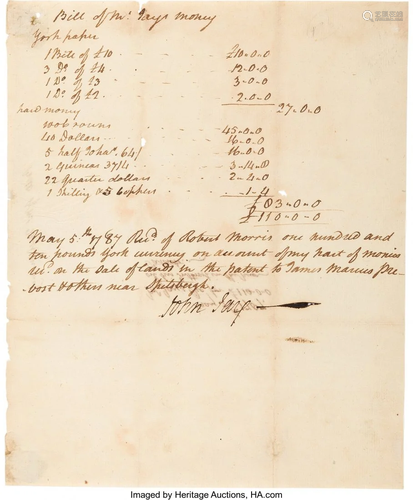 Bill of Mr. Jays money
York paper
1 Bill of £10 £10-0-0
3 Do. of £4 12-0-0
1 Do. of £3 3-0-0
1 Do. of £2 2-0-0
27-0-0
hard money
100 Crowns 45-0-0
40 Dollars 16-0-0
5 half Johas. 64/ 16-0-0
2 guineas 37/4 3-14-8
22 quarter dollars 2-4-0
1 Shilling & 5 Coppers 1-4
£83-0-0
£110-0-0
May 5th. 1787 Recd. of Robert Morris one hundred and
ten pounds York currency on account of my part of monies
recd. on the Sale of lands in the patent to James Marcus Pre-
vost & others near
John Jay
Imaged by Heritage Auctions, HA.com